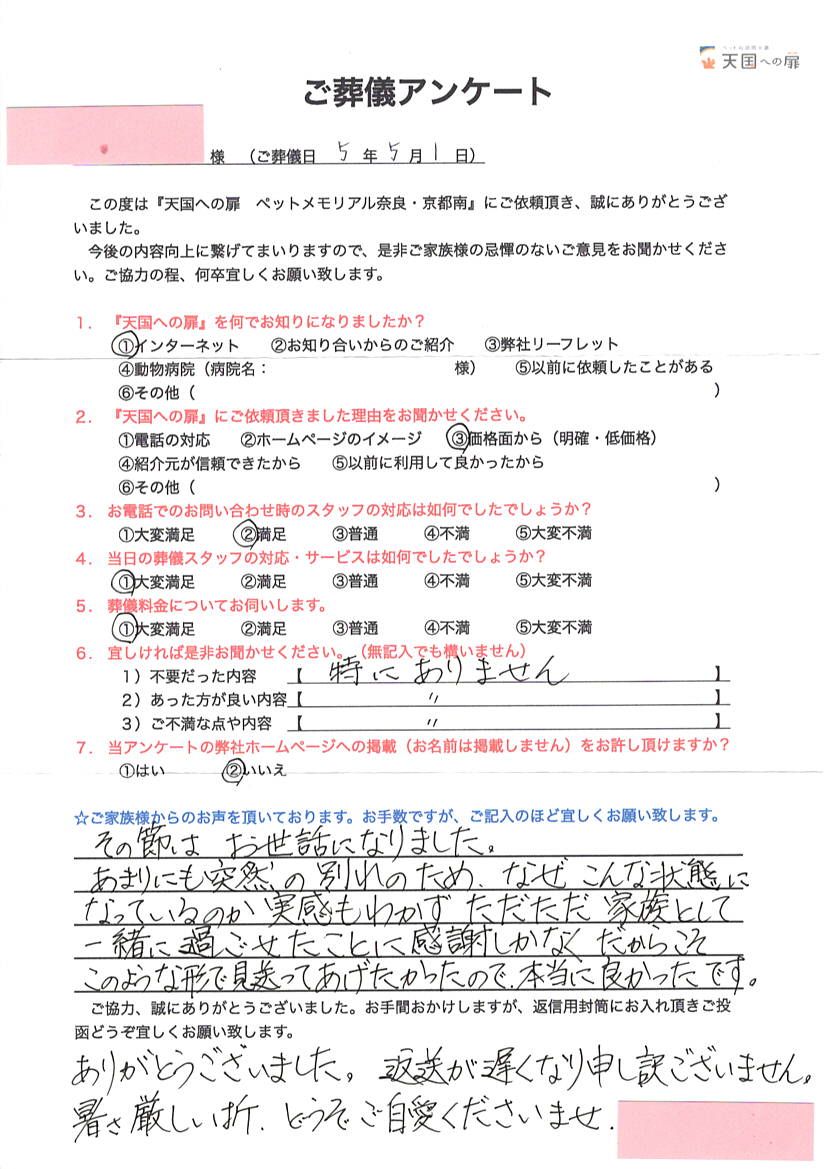 天国への扉
ご葬儀アンケート
様 (ご葬儀日 5 年 5 月 1 日)
この度は『天国への扉 ペットメモリアル奈良・京都南』にご依頼頂き、誠にありがとうござ
いました。
今後の内容向上に繋げてまいりますので、是非ご家族様の忌憚のないご意見をお聞かせくださ
い。ご協力の程、何卒宜しくお願い致します。
1. 『天国への扉』を何でお知りになりましたか?
①インターネット ②お知り合いからのご紹介 ③弊社リーフレット
④動物病院(病院名: 様) ⑤以前に依頼したことがある
⑥その他( )
2. 『天国への扉』にご依頼頂きました理由をお聞かせください。
①電話の対応 ②ホームページのイメージ ③価格面から(明確・低価格)
④紹介元が信頼できたから ⑤以前に利用して良かったから
⑥その他( )
3. お電話でのお問い合わせ時のスタッフの対応は如何でしたでしょうか?
①大変満足 ②満足 ③普通 ④不満 ⑤大変不満
4. 当日の葬儀スタッフの対応・サービスは如何でしたでしょうか?
①大変満足 ②満足 ③普通 ④不満 ⑤大変不満
5. 葬儀料金についてお伺いします。
①大変満足 ②満足 ③普通 ④不満 ⑤大変不満
6. 宜しければ是非お聞かせください。(無記入でも構いません)
1)不要だった内容 【 特にありません 】
2)あった方が良い内容【 〃 】
3)ご不満な点や内容 【 〃 】
7. 当アンケートの弊社ホームページへの掲載(お名前は掲載しません)をお許し頂けますか?
①はい ②いいえ
☆ご家族様からのお声を頂いております。お手数ですが、ご記入のほど宜しくお願い致します。
その節は お世話になりました。
あまりにも突然の別れのため、なぜこんな状態に
なっているのか実感もわかず ただただ 家族として
一緒に過ごせたことに感謝しかなく だからこそ
このような形で見送ってあげたかったので、本当に良かったです。
ご協力、誠にありがとうございました。お手間おかけしますが、返信用封筒にお入れ頂きご投
函どうぞ宜しくお願い致します。
ありがとうございました。返送が遅くなり申し訳ございません。
暑さ厳しい折、どうぞご自愛くださいませ.